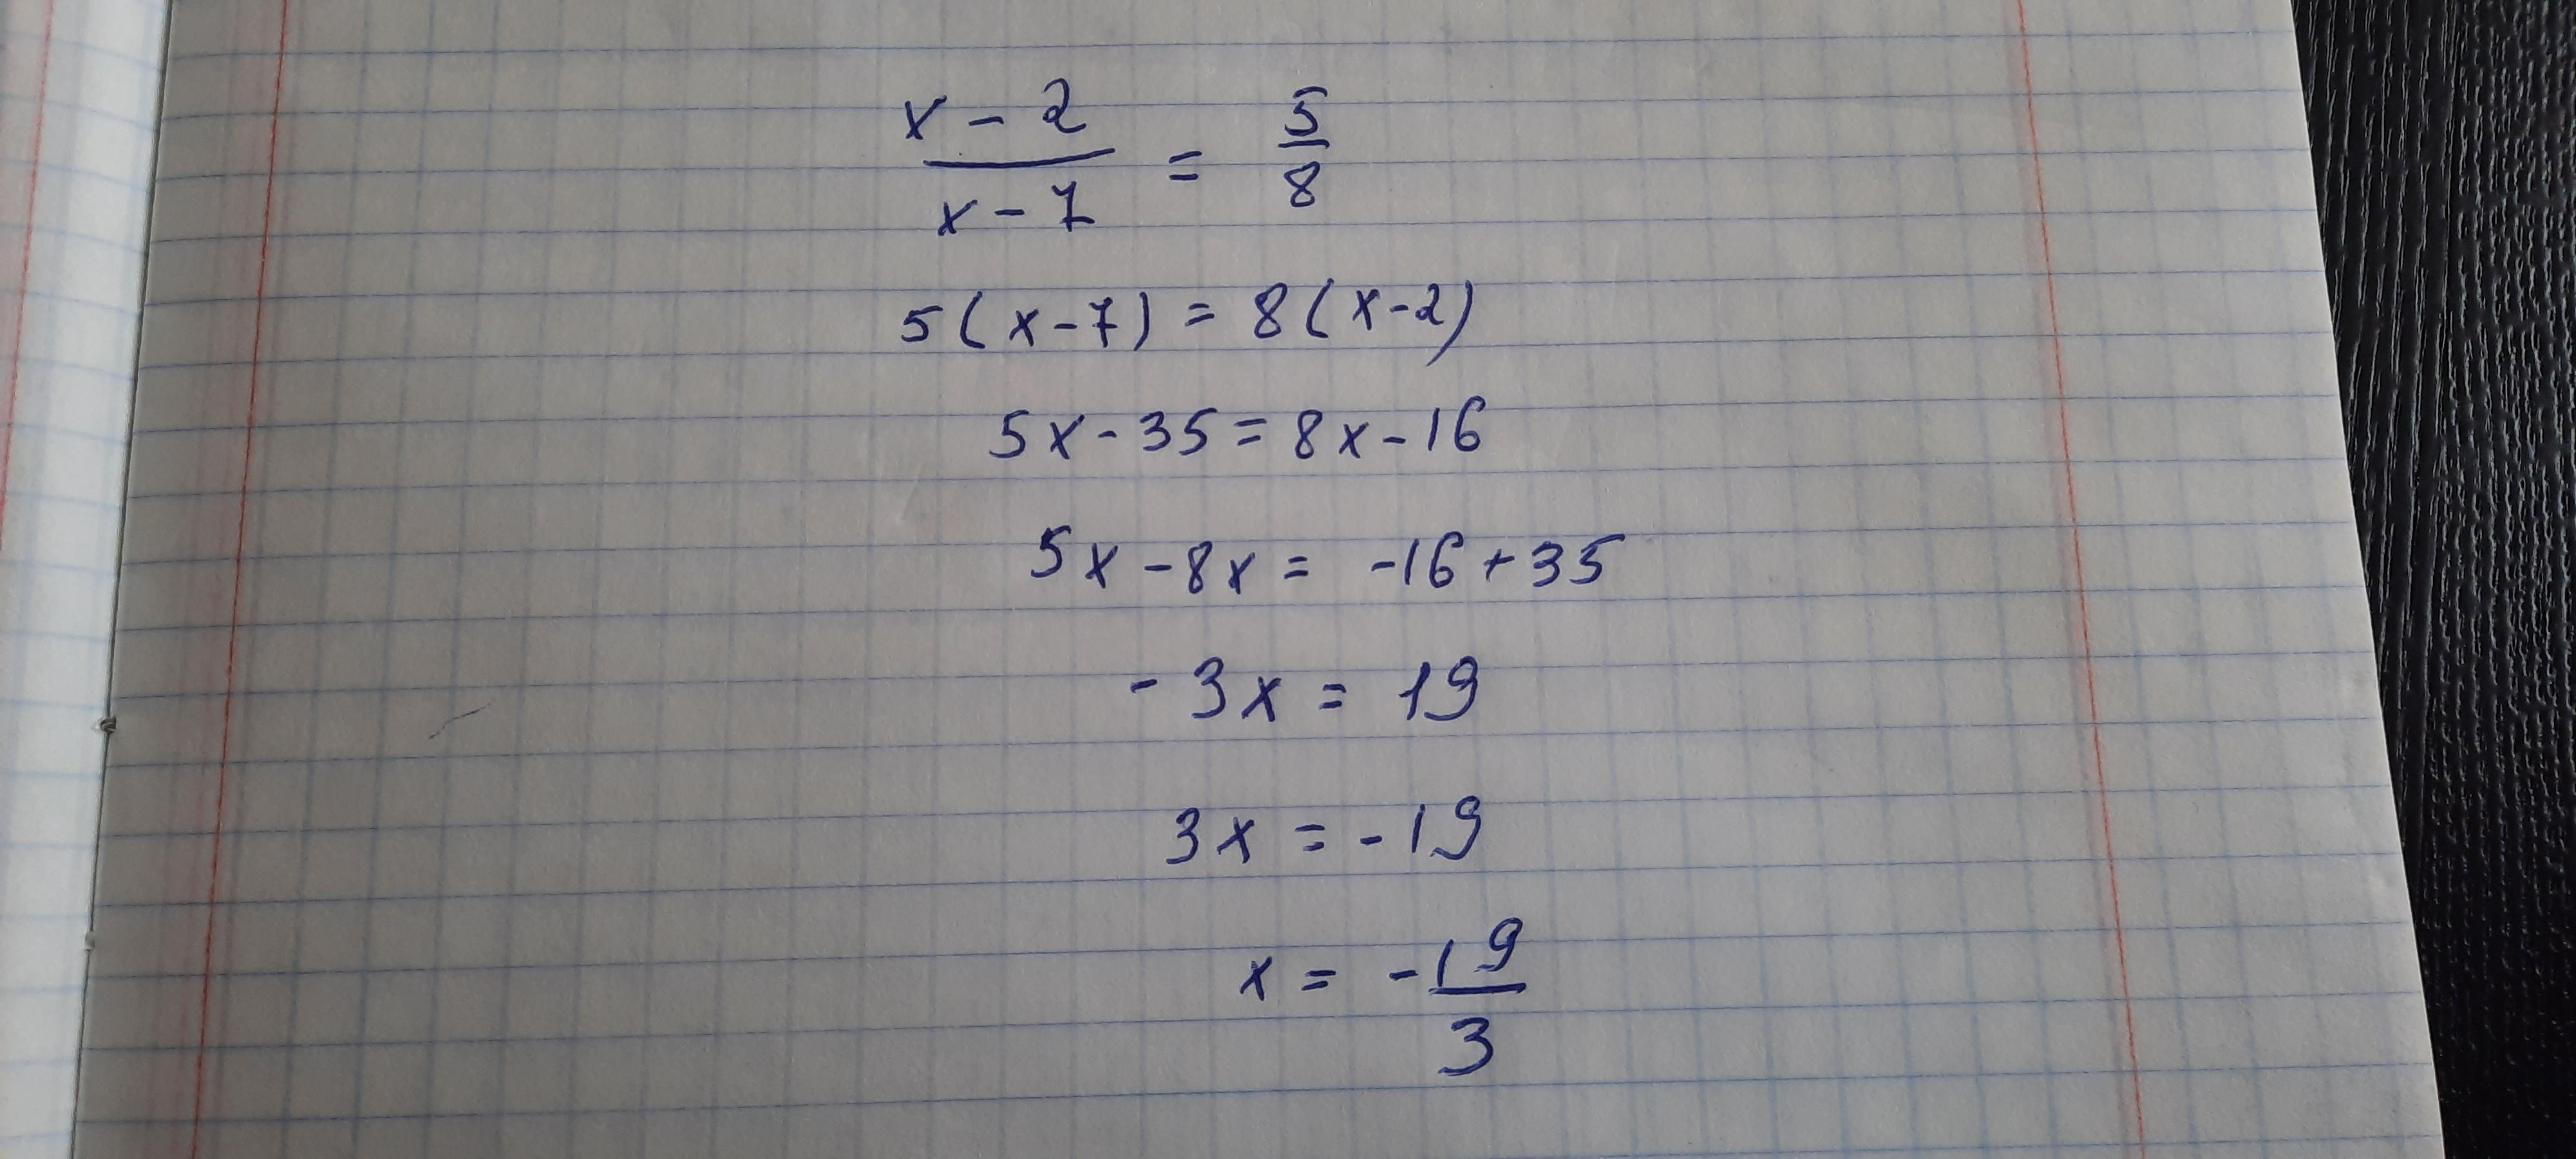 x - 2 / x - 7 = 5 / 8
5(x-7) = 8(x-2)
5x-35=8x-16
5x-8x= -16+35
-3x = 19
3x = -19
x = -19 / 3